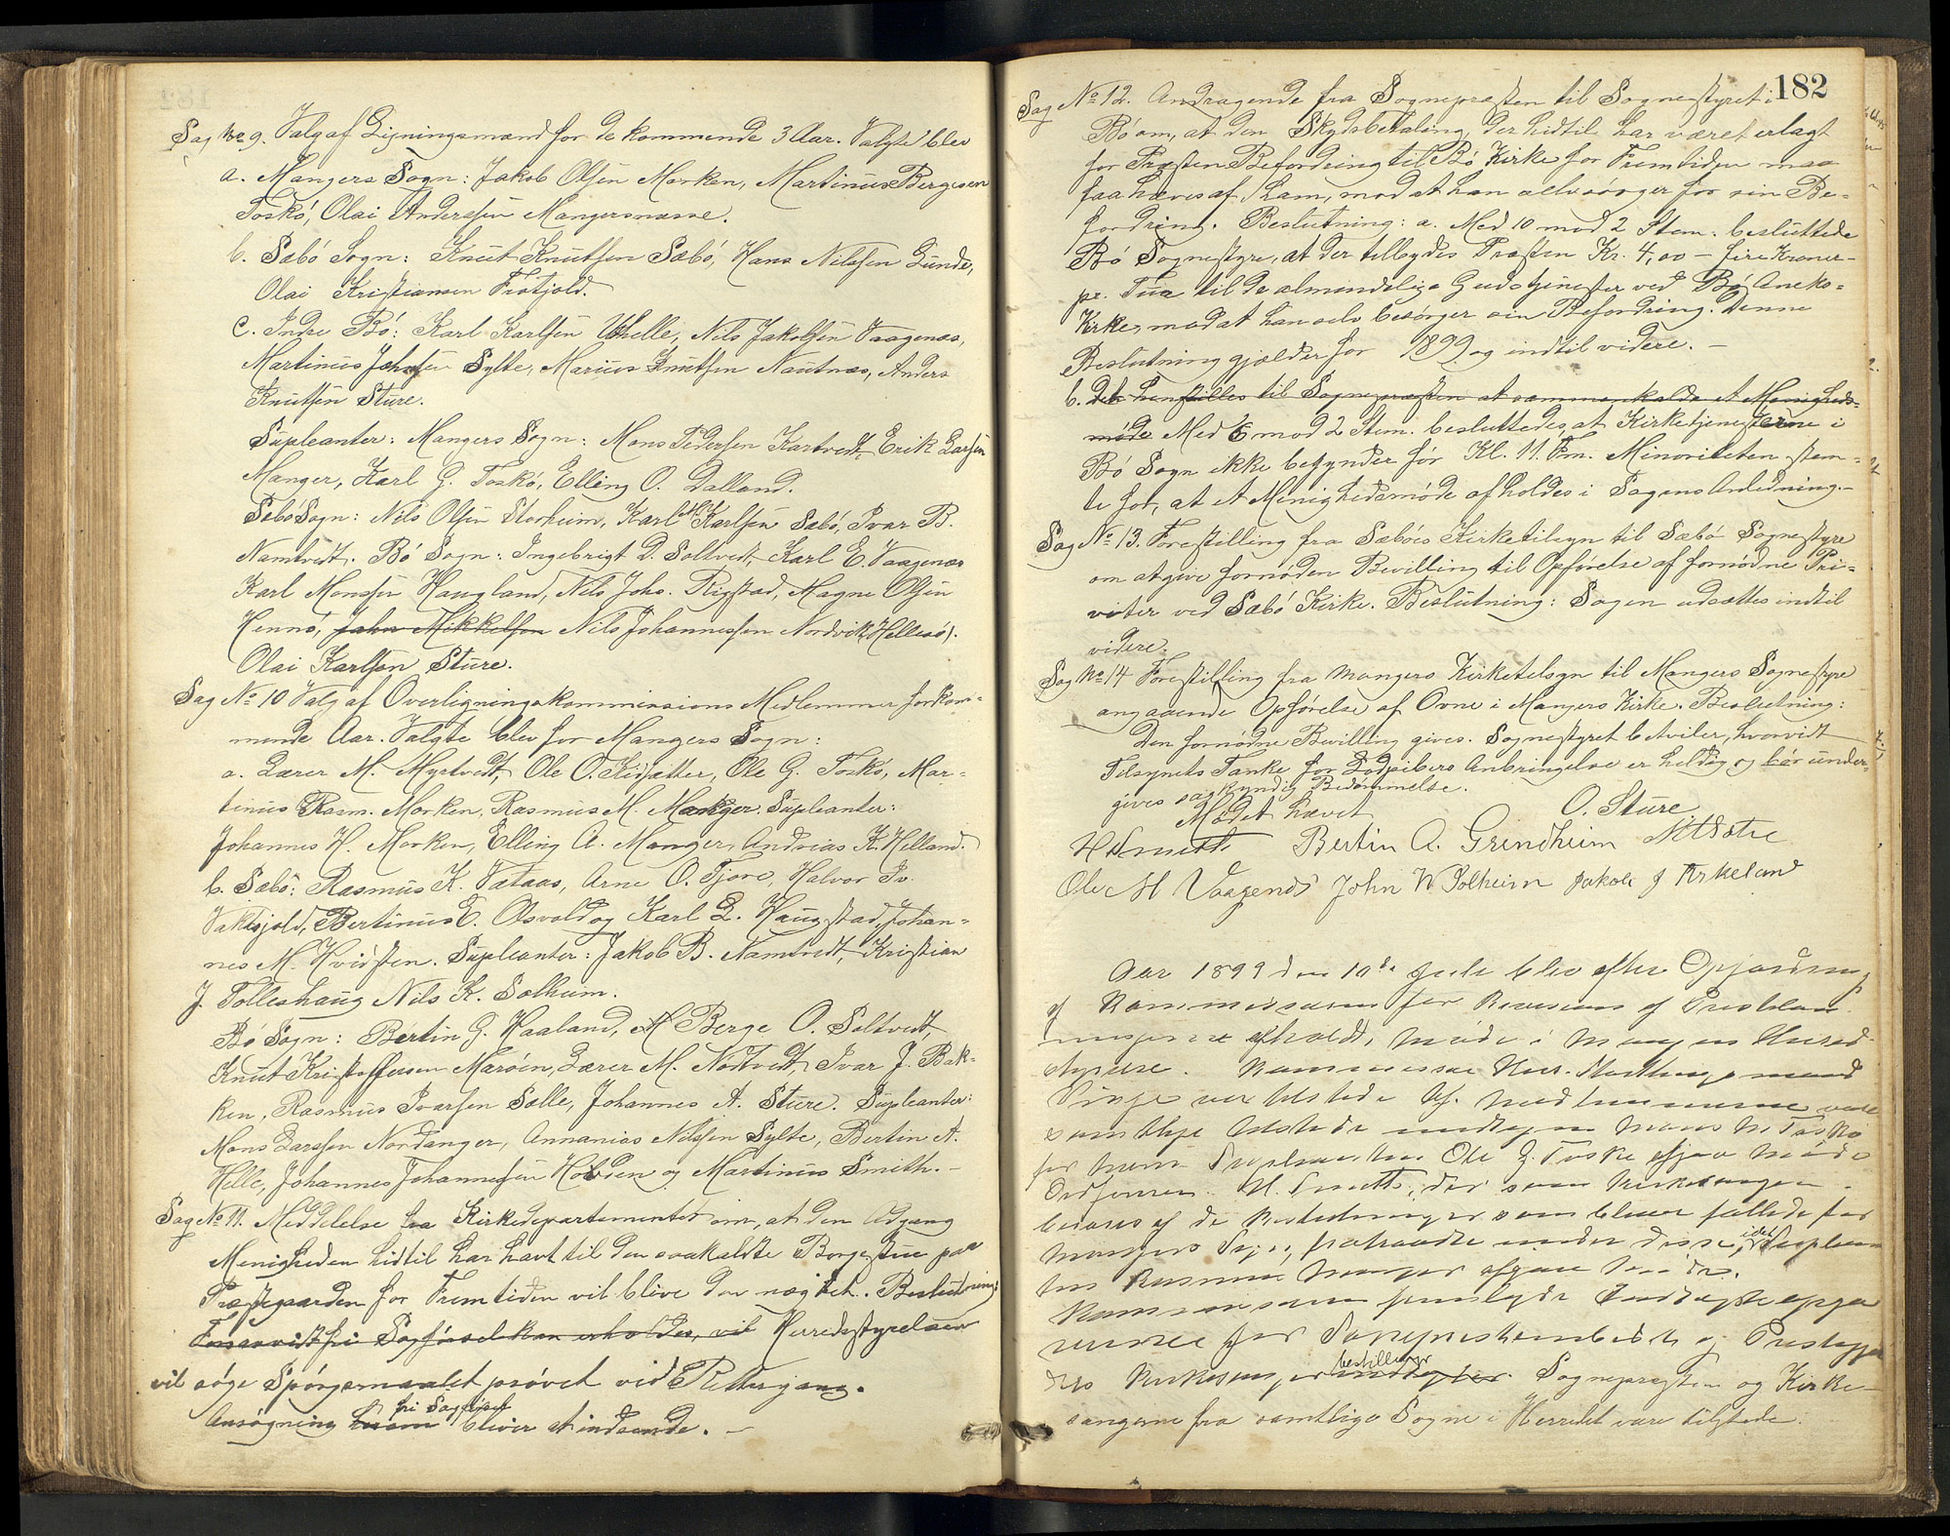 Sag No 9. Valg af Ligningsmænd for de kommende 3 Aar. Valgte blev
a. Mangers Sogn: Jakob Olsen Marken, Martinus Bergesen
Toskö, Olai Anderssen Mangersnæsse.
b. Sæbö Sogn: Knut Knutsen Sæbö, Hans Nilssen Lunde,
Olai Kristiansen Frotjold.
c. Indre Bö: Karl Karlsen Uthelle, Nils Jakobsen Vaagenæs,
Martinus Johnsen Sylte, Marius Knutsen Nautnæs, Anders
Knutsen Sture.
Supleanter: Mangers Sogn: Mons Pedersen Kartvedt, Erik Larsen
Manger, Karl G. Toskö, Elling O. Dalland.
Sæbö Sogn: Nils Olsen Storheim, Karl M. Karlsen Sæbö, Ivar B.
Namtvedt. Bö Sogn: Ingebrigt D. Soltvedt, Karl E. Vaagenæs
Karl Monsen Haugland, Nils Johs. Rigstad, Magne Olsen
Hennö, John Mikkelsen Nils Johannessen Nordvik (Hellesö).
Olai Karlsen Sture.
Sag No 10 Valg af Overligningskommissions Medlemmer for kom-
mende Aar. Valgte blev for Mangers Sogn:
a. Lærer M. Myrtvedt, Ole O. Kidsætter, Ole G. Toskö, Mar-
tinus Rasm. Marken, Rasmus M. Manger. Supleanter:
Johannes H. Marken, Elling A. Manger, Andreas K. Helland.
b. Sæbö: Rasmus K. Vataas, Arne O. Fjore, Halvor Iv.
Vakesjold, Bertinus E. Osvold og Karl L. Haugstad, Johan-
nes M. Hvidsten. Supleanter: Jakob B. Namtvedt, Kristian
J. Tolleshaug Nils K. Solheim.
Bö Sogn: Bertin G. Haaland, M Berge O. Soltvedt
Knut Kristoffersen Maröen, Lærer M. Nödtvedt, Ivar J. Bak-
ken, Rasmus Ivarsen Solle, Johannes A. Sture. Supleanter:
Mons Larssen Nordanger, Annanias Nilssen Sylte, Bertin A.
Helle, Johannes Johannessen Hopden og Martinus Smith. -
Sag No 11. Meddelelse fra Kirkedepartementet om, at den Adgang
Menigheden hidtil har havt til den saakaldte Borgestue paa
Præstegaarden for Fremtiden vil blive den nægtet. Beslutning:
Forsaavidt fri Sagförsel kan erholdes, vil Herredsstyrelsen
vil söge Spörgsmaalet prövet ved Rettergang.
fri Sagförsel
Ansögning bliver at indsende. -
182
Sag No 12. Andragende fra Sognepræsten til Sognestyret i
Bö om, at den Skydsbetaling, der hidtil har været erlagt
for Præsten Befordring til Bö Kirke for Fremtiden maa
faa hæves af ham, mod at han selv sörger for sin Be-
fordring. Beslutning: a. Med 10 mod 2 Stem. besluttede
Bö Sognestyre, at der tillægdes Præsten Kr. 4,00 - fire Kroner -
pr. Tur til de almindelige Gudstjenester ved Bö Aneks-
Kirke, mod at han selv besörger sin Befordring. Denne
Beslutning gjælder for 1899 og indtil videre. -
b. Det henstilles til Sognepræsten at sammenkalde et Menigheds-
möde Med 6 mod 2 Stem. besluttedes, at Kirketjenesterne i
Bö Sogn ikke begynder för Kl. 11. Fm. Minoriteten stem-
te for, at et Menighedsmöde afholdes i Sagens Anledning. -
Sag No 13. Forestilling fra Sæbö's Kirketilsyn til Sæbö Sognestyre
om at give fornöden Bevilling til Opförelse af fornödne Pri-
veter ved Sæbö Kirke. Beslutning: Sagen udsættes indtil
videre.
Sag No 14 Forestilling fra Mangers Kirketilsyn til Mangers Sognestyre
angaaende Opförelse af Ovne i Mangers Kirke. Beslutning:
Den fornödne Bevilling gives. Sognestyret betviler, hvorvidt
Tilsynets Tanke for Lodpibers Anbringelse er heldig og bör under-
gives sagkyndig Bedömmelse.
Mödet hævet
O. Sture
H Smith Bertin A. Grindheim
Ole M Vaagenes John W Solheim Jakob J Kirkeland
Aar 1899 den 10de Juli blev efter Opfordring
af Kommissionen for Revision af
afholdt möde i Mangers Herred-
styrelse.
var tilstede. Af Medlemmerne vare
samtlige tilstede undtagen Mons N. Toskö
for hvem Supleanten Ole G. Toskö gjor Möde
Ordföreren H. Smith, der som Kirkesanger
af de Beslutninger som bliver fattede for
Mangers Sogn, fratraadte under disse, idet Suplean
ten Rasmus Manger
Kommissionen fremlagde Indtægtsopga
for Sognepræstembedet og Præstegja
bestillinger
des Kirkesangerindtægter. Sognepræsten og Kirke-
sangerne fra samtlige Sogne i Herredet vare tilstede.